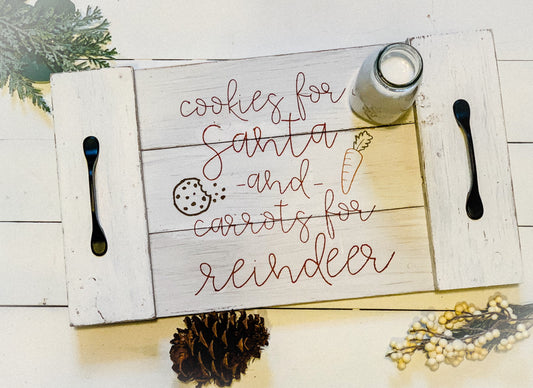 cookies for
Santa
-and-
carrots for
reindeer